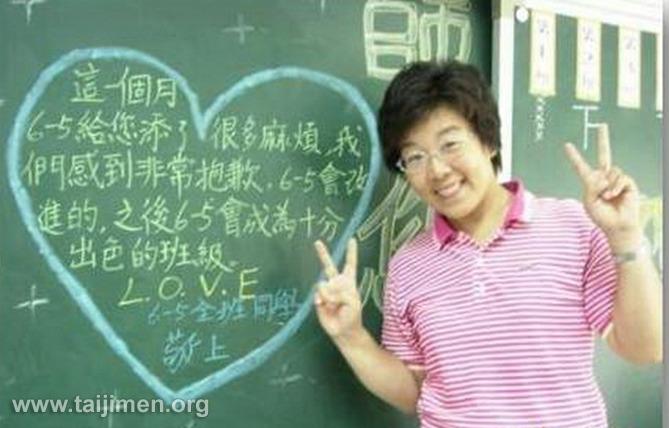 這一個月
6-5給您添了很多麻煩,我
們感到非常抱歉,6-5會改
進的,之後6-5會成為十分
出色的班級。
L.O.V.E
6-5全班同學
敬上
師
www.taijimen.org